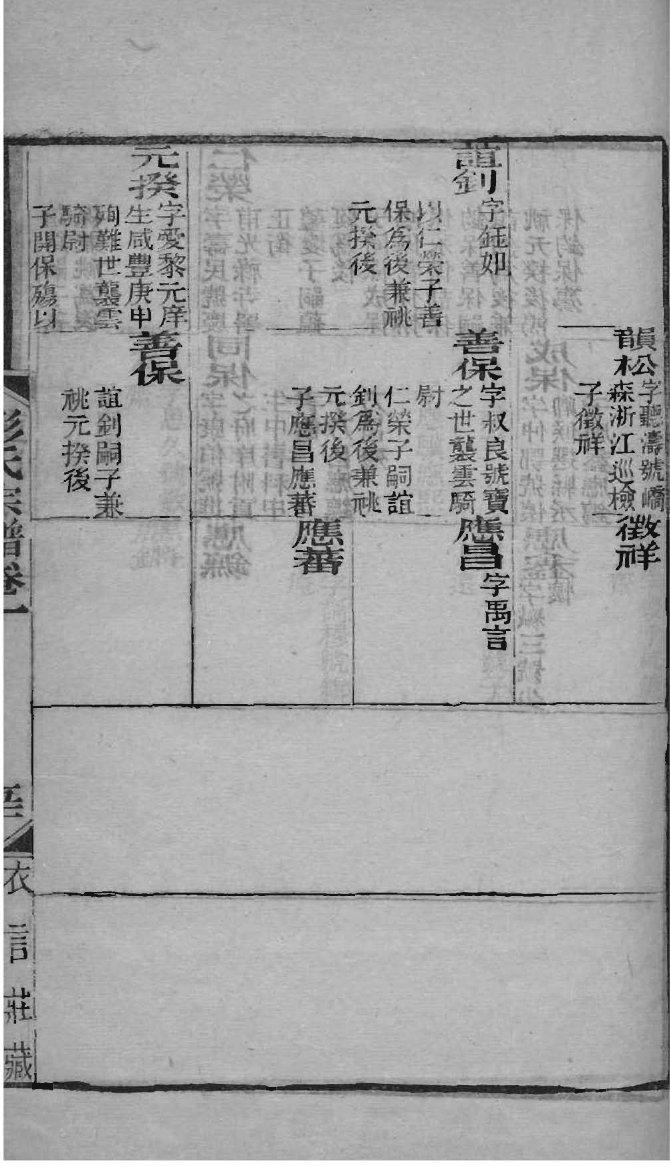 韻松
字聽濤號嶠
森浙江巡檢
子徵祥
徵祥
誼釗
字鈺如
以仁榮子善
保爲後兼祧
元揆後
善保
字叔良號寶
之世襲雲騎
尉
仁榮子嗣誼
釗爲後兼祧
元揆後
子應昌應蕃
應昌
字禹言
應蕃
元揆
字愛黎元庠
生咸豐庚申
殉難世襲雲
騎尉
子開保殤以
善保
誼釗嗣子兼
祧元揆後
彭氏宗譜卷一
衣言莊藏